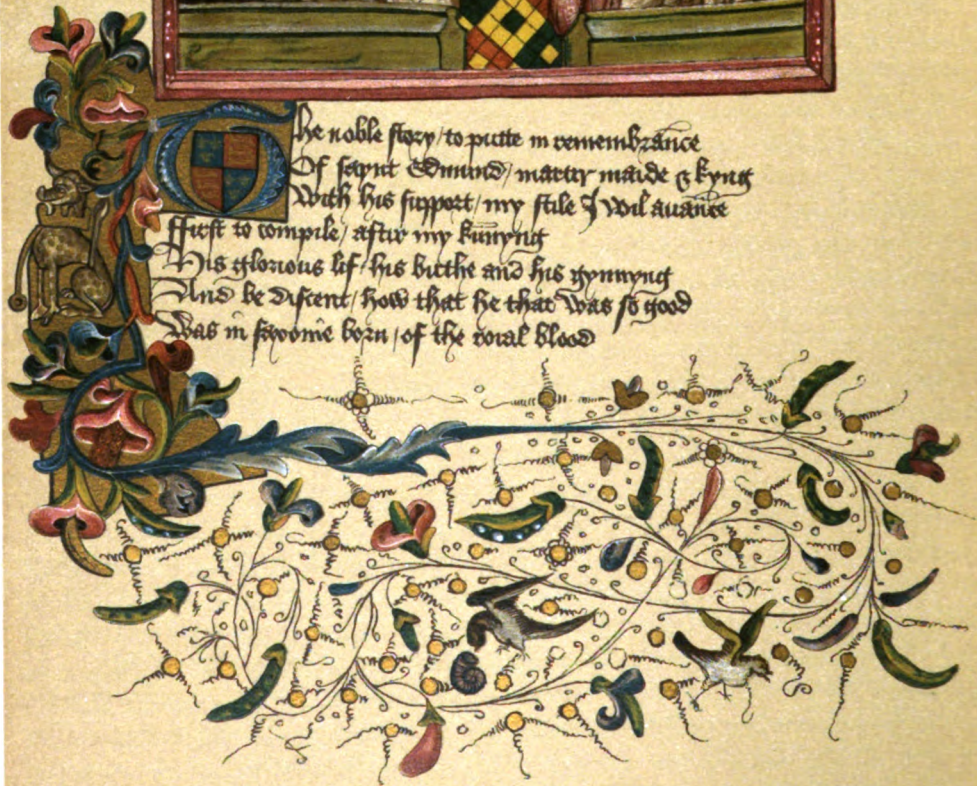 The noble story / to putte in remembrance
Of saynt Edmund / martir maide & kyng
With his support / my stile I wil auance
ffirst to compile / aftir my kunnyng
His glorious lif / his birthe and his gynnyng
And be discent / how that he that was so good
Was in saxonie born / of the roial blood